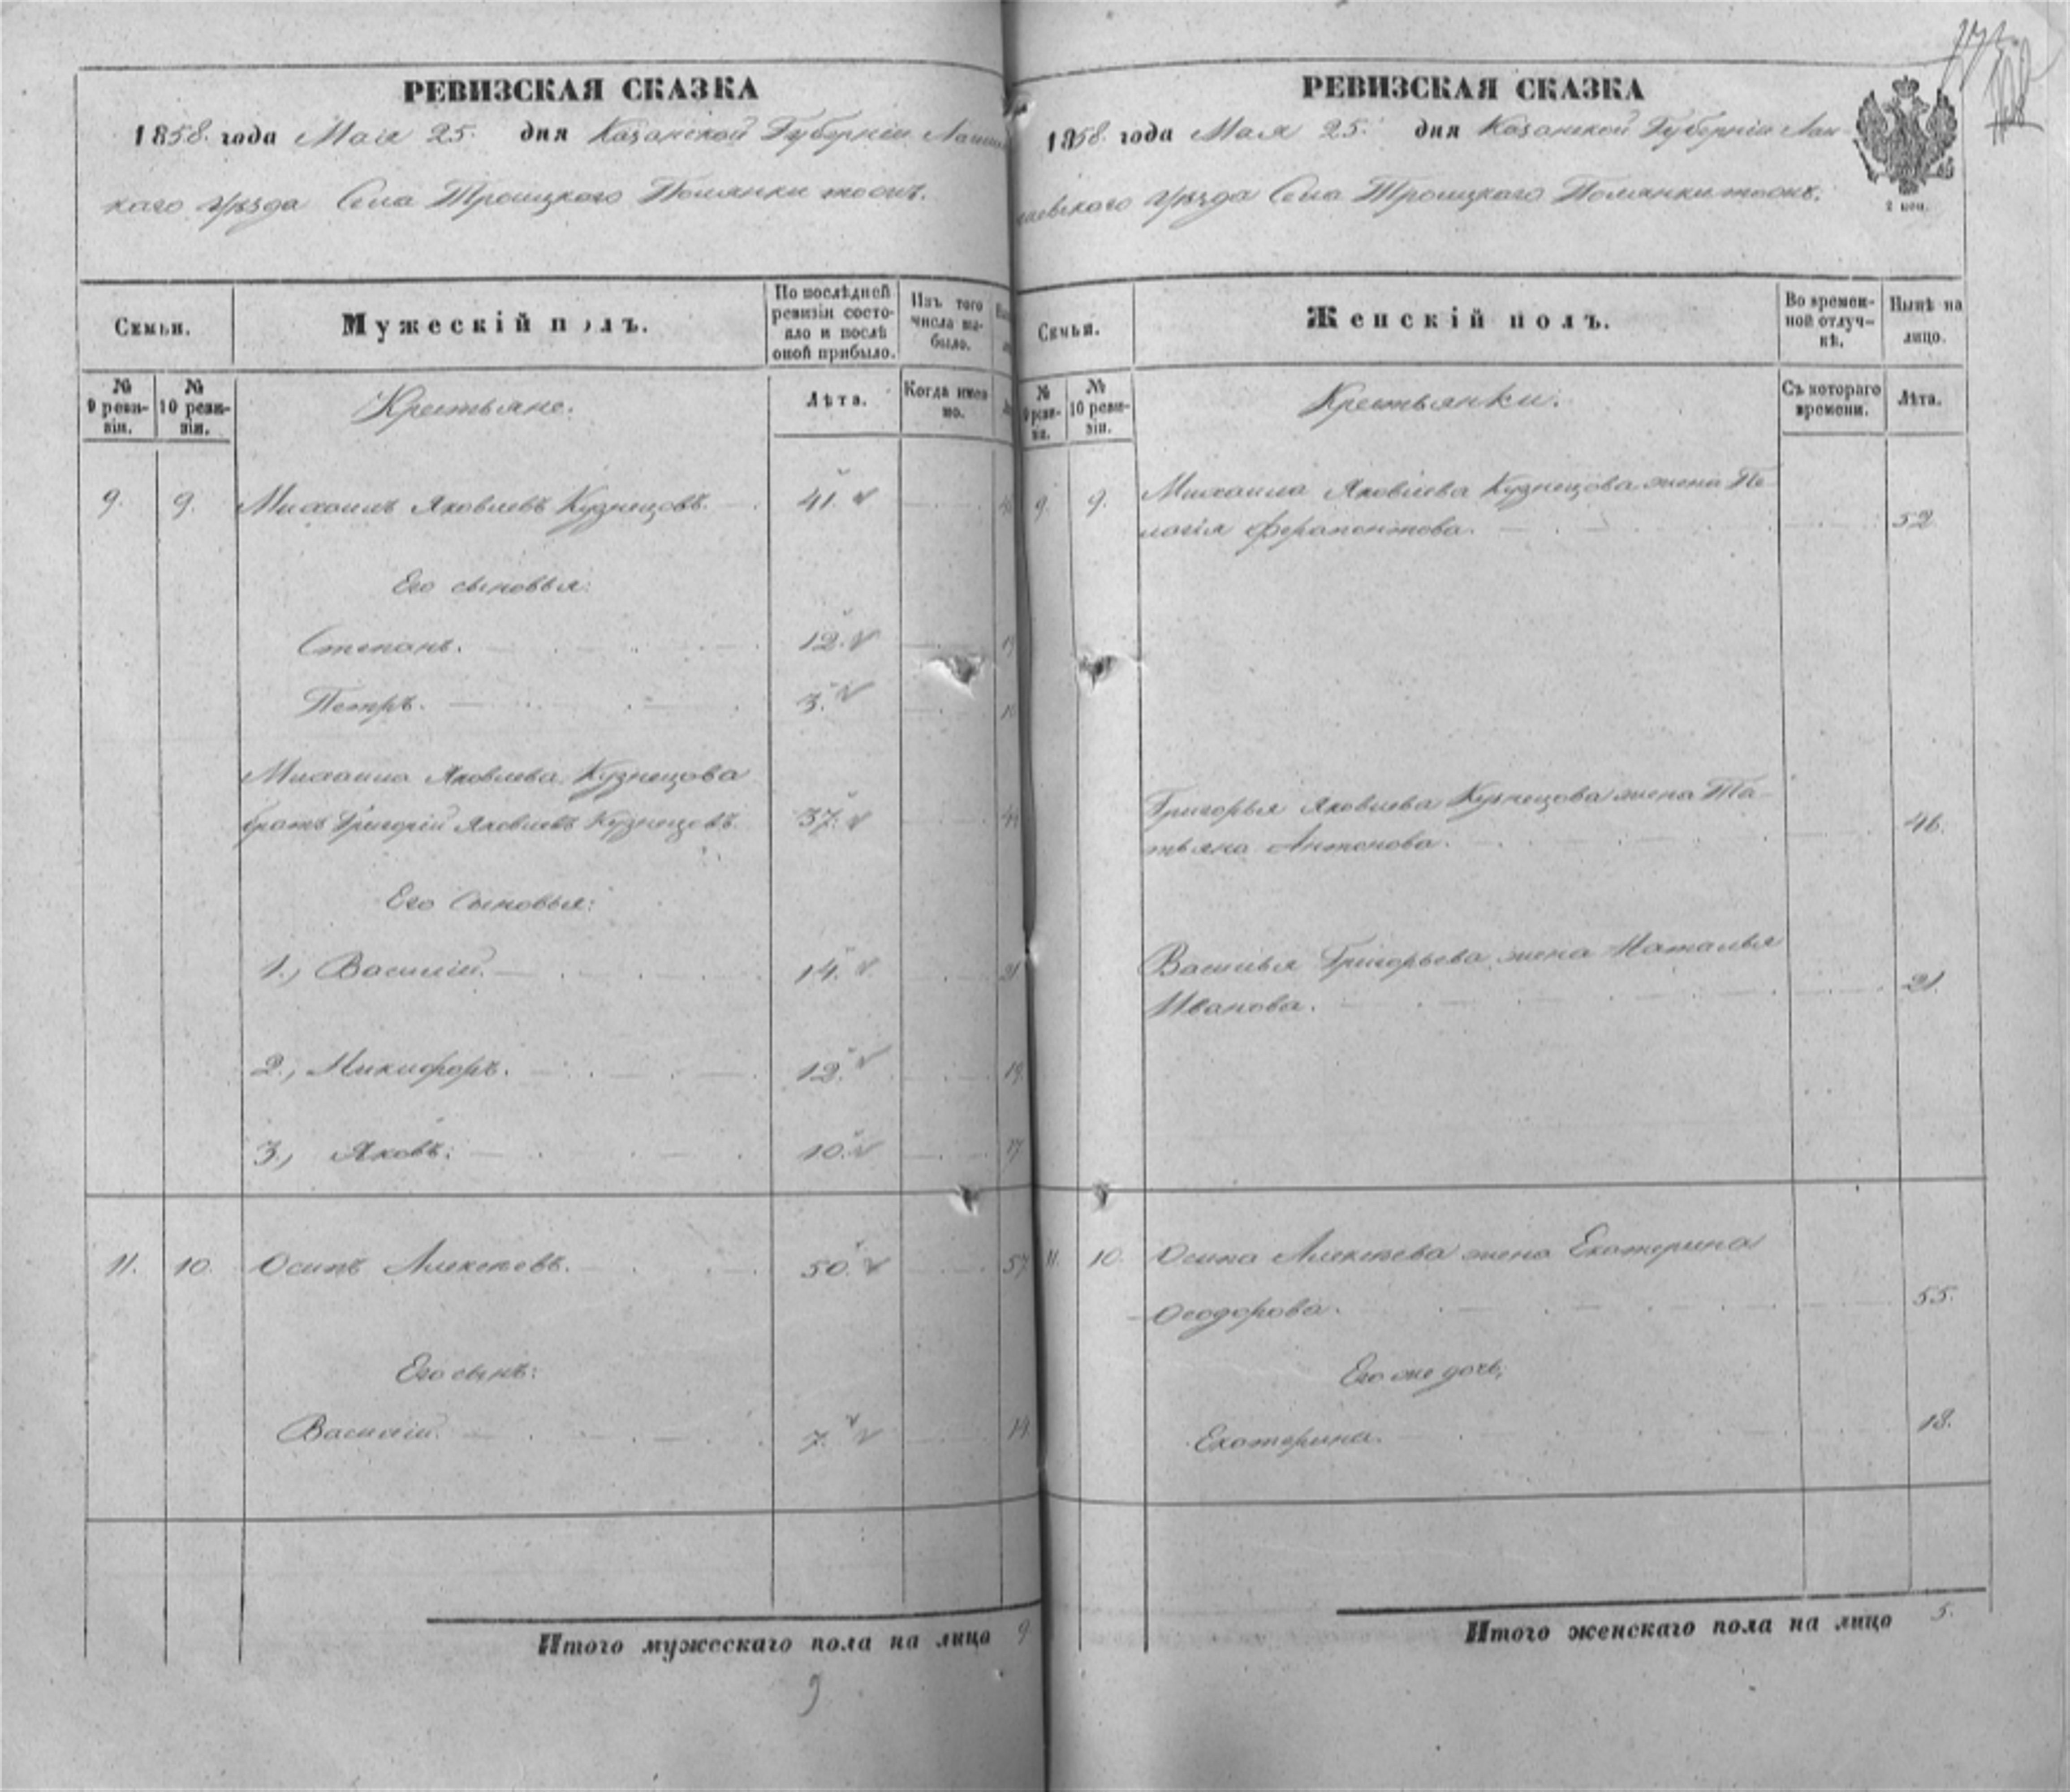 РЕВИЗСКАЯ СКАЗКА
1858. года Мая 25. дня Казанской Губернiи Лаише
каго Уѣзда Села Троицкаго Полянки тожъ.
Семьи.
Мужескiй полъ.
По послѣдней ревизiи состояло и послѣ оной прибыло.
Изъ того числа выбыло.
№ 9 ревизiи.
№ 10 ревизiи.
Крестьяне.
Лѣта.
Когда именно.
9. 9. Михаилъ Яковлевъ Кузнецовъ. 41.
Его сыновья:
Степанъ. 12. 19
Петръ. 3. 10
Михаила Яковлева Кузнецова
братъ Григорiй Яковлевъ Кузнецовъ. 37. 44
Его Сыновья:
1., Василiй. 14. 21
2., Никифоръ. 12. 19.
3., Яковъ. 10. 17
11. 10. Осипъ Алексѣевъ. 50. 57
Его сынъ:
Василiй. 7. 14
Итого мужескаго пола на лицо 9
9
РЕВИЗСКАЯ СКАЗКА
1858. года Мая 25. дня Казанской Губернiи Лаи-
шевскаго Уѣзда Села Троицкаго Полянки тожъ.
2 коп.
Семьи.
Женскiй полъ.
Во временной отлучкѣ.
Нынѣ на лицо.
№ 9 ревизiи.
№ 10 ревизiи.
Крестьянки.
Съ котораго времени.
Лѣта.
9. 9. Михаила Яковлева Кузнецова жена Пе-
лагiя Ферапонтова. 52
Григорья Яковлева Кузнецова жена Та-
тьяна Антонова. 46.
Василья Григорьева жена Наталья
Иванова. 21.
11. 10. Осипа Алексѣева жена Екатерина
Ѳеодорова. 55.
Его же дочь;
Екатерина. 18.
Итого женскаго пола на лицо 5.